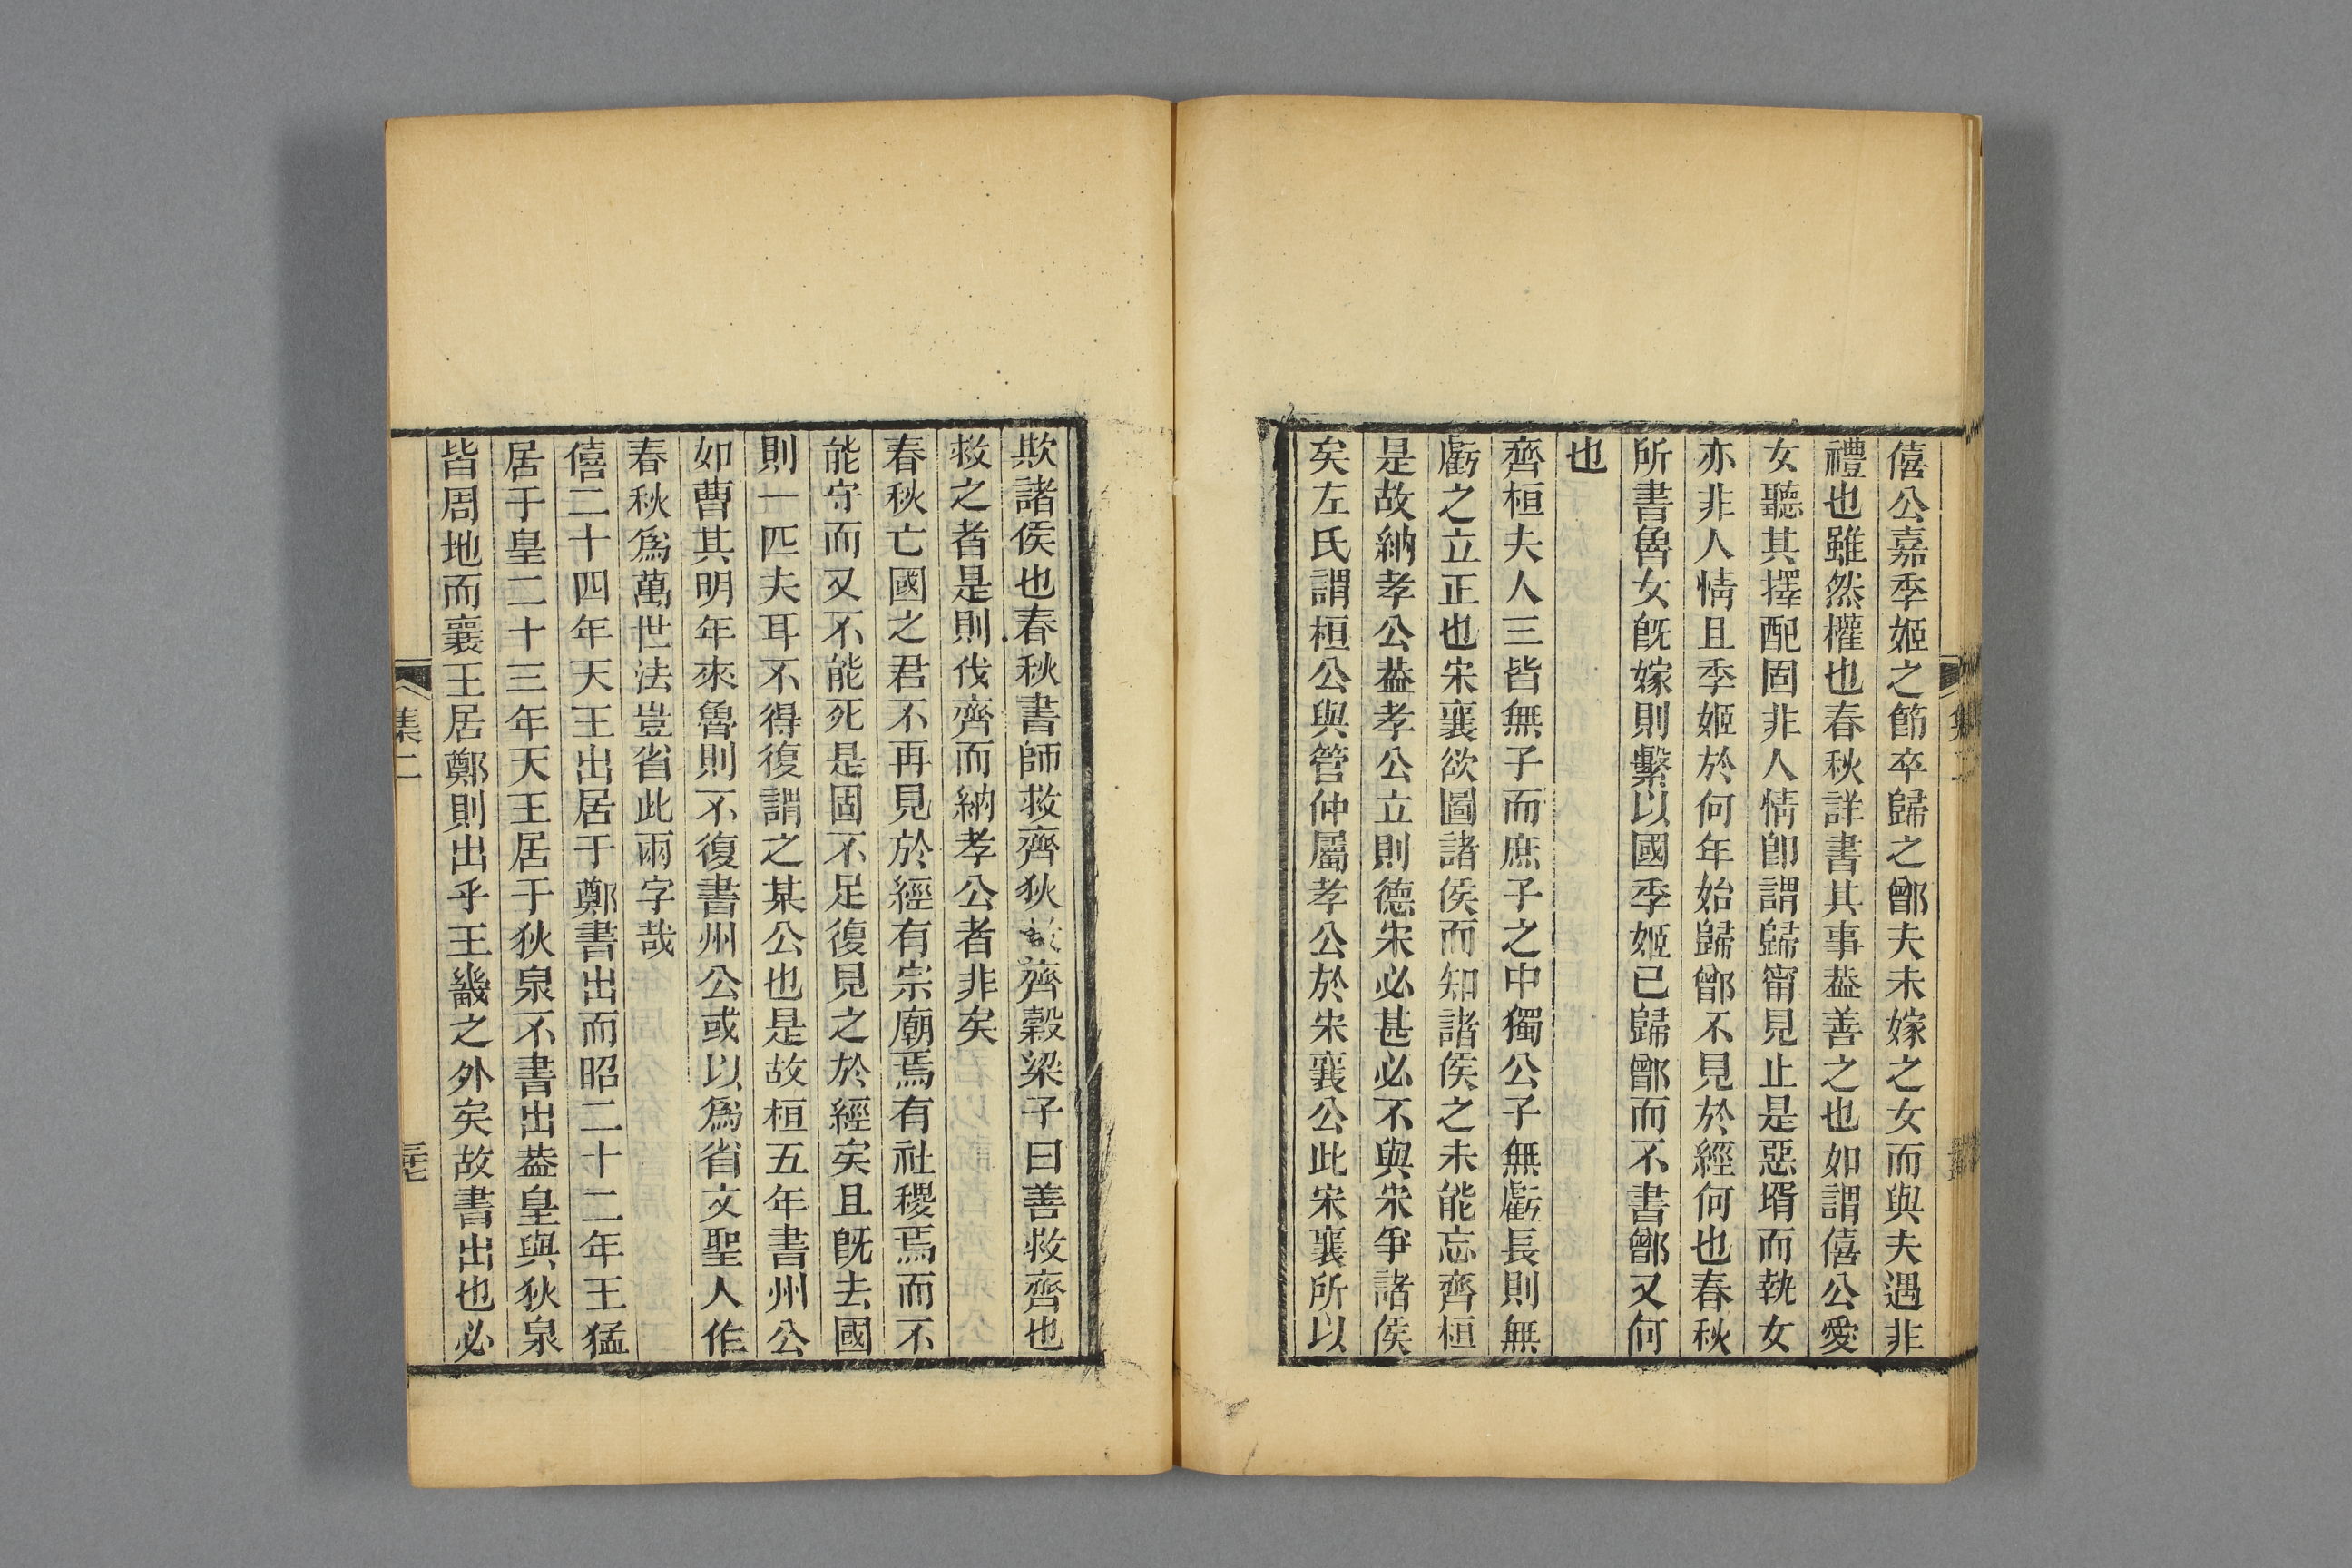 僖公嘉季姬之節卒歸之鄫夫未嫁之女而與夫遇非
禮也雖然權也春秋詳書其事葢善之也如謂僖公愛
女聽其擇配固非人情卽謂歸甯見止是惡壻而執女
亦非人情且季姬於何年始歸鄫不見於經何也春秋
所書魯女旣嫁則繫以國季姬已歸鄫而不書鄫又何
也
齊桓夫人三皆無子而庶子之中獨公子無虧長則無
虧之立正也宋襄欲圖諸侯而知諸侯之未能忘齊桓
是故納孝公葢孝公立則德宋必甚必不與宋爭諸侯
矣左氏謂桓公與管仲屬孝公於宋襄公此宋襄所以
欺諸侯也春秋書師救齊狄救齊穀梁子曰善救齊也
救之者是則伐齊而納孝公者非矣
春秋亡國之君不再見於經有宗廟焉有社稷焉而不
能守而又不能死是固不足復見之於經矣且旣去國
則一匹夫耳不得復謂之某公也是故桓五年書州公
如曹其明年來魯則不復書州公或以爲省文聖人作
春秋爲萬世法豈省此兩字哉
僖二十四年天王出居于鄭書出而昭二十二年王猛
居于皇二十三年天王居于狄泉不書出葢皇與狄泉
皆周地而襄王居鄭則出乎王畿之外矣故書出也必
集二